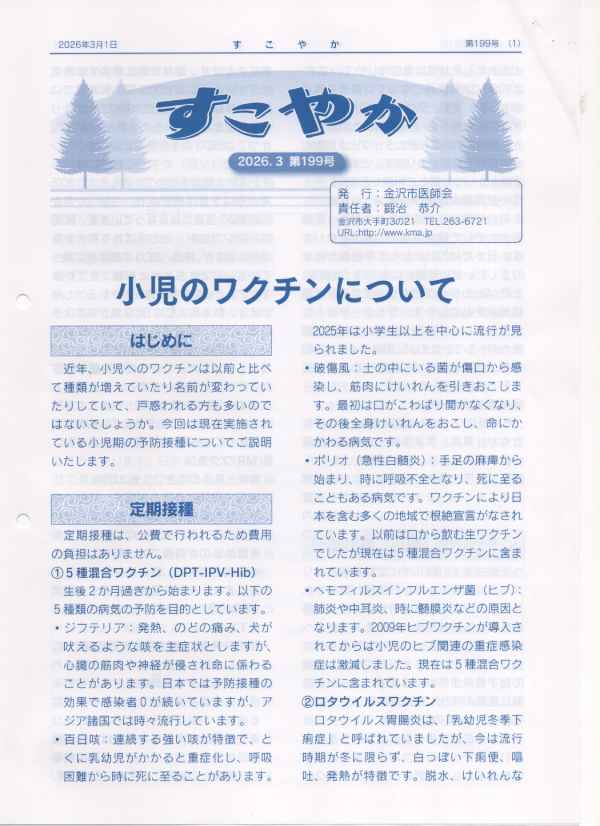 2026年3月1日
すこやか
第199号 (1)
すこやか
2026. 3 第199号
発　行：金沢市医師会
責任者：鍛治　恭介
金沢市大手町3の21　TEL.263-6721
URL:http://www.kma.jp
小児のワクチンについて
はじめに
　近年、小児へのワクチンは以前と比べ
て種類が増えていたり名前が変わってい
たりしていて、戸惑われる方も多いので
はないでしょうか。今回は現在実施され
ている小児期の予防接種についてご説明
いたします。
定期接種
　定期接種は、公費で行われるため費用
の負担はありません。
①５種混合ワクチン（DPT-IPV-Hib）
　生後２か月過ぎから始まります。以下の
５種類の病気の予防を目的としています。
・ジフテリア：発熱、のどの痛み、犬が
吠えるような咳を主症状としますが、
心臓の筋肉や神経が侵され命に係わる
ことがあります。日本では予防接種の
効果で感染者０が続いていますが、ア
ジア諸国では時々流行しています。
・百日咳：連続する強い咳が特徴で、と
くに乳幼児がかかると重症化し、呼吸
困難から時に死に至ることがあります。
2025年は小学生以上を中心に流行が見
られました。
・破傷風：土の中にいる菌が傷口から感
染し、筋肉にけいれんを引きおこしま
す。最初は口がこわばり開かなくなり、
その後全身けいれんをおこし、命にか
かわる病気です。
・ポリオ（急性白髄炎）：手足の麻痺から
始まり、時に呼吸不全となり、死に至る
こともある病気です。ワクチンにより日
本を含む多くの地域で根絶宣言がなされ
ています。以前は口から飲む生ワクチン
でしたが現在は５種混合ワクチンに含ま
れています。
・ヘモフィルスインフルエンザ菌（ヒブ）：
肺炎や中耳炎、時に髄膜炎などの原因と
なります。2009年ヒブワクチンが導入さ
れてからは小児のヒブ関連の重症感染
症は激減しました。現在は５種混合ワク
チンに含まれています。
②ロタウイルスワクチン
　ロタウイルス胃腸炎は、「乳幼児冬季下
痢症」と呼ばれていましたが、今は流行
時期が冬に限らず、白っぽい下痢便、嘔
吐、発熱が特徴です。脱水、けいれんな